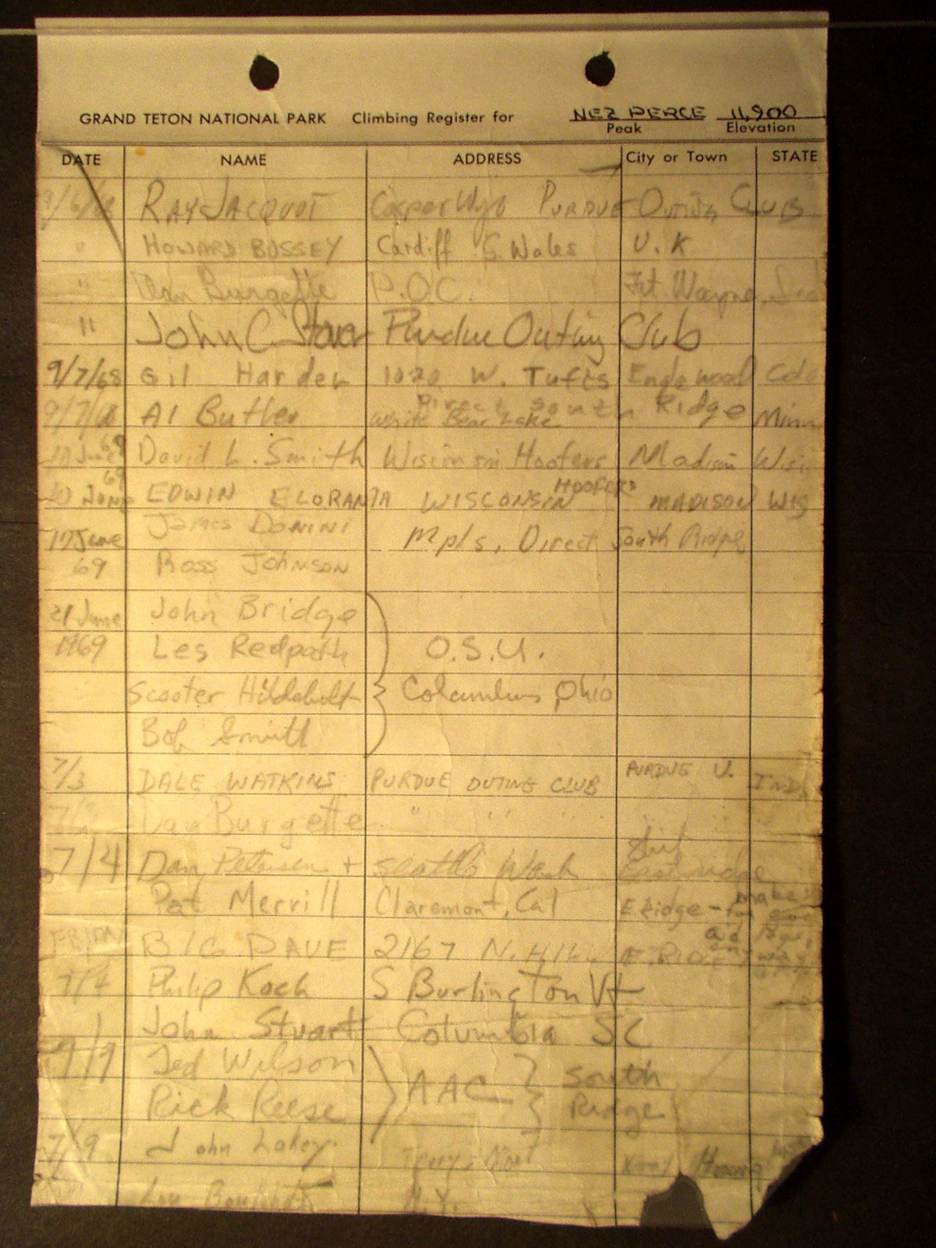 GRAND TETON NATIONAL PARK Climbing Register for NEZ PERCE 11,900
Peak Elevation
DATE NAME ADDRESS City or Town STATE
9/6/68 RAY JACQUOT Casper Wyo PURDUE OUTING CLUB
" HOWARD BUSSEY Cardiff S. Wales U.K.
" Dan Burgette P.O.C. Ft. Wayne, Ind
" John C. Stover Purdue Outing Club
9/7/68 Gil Harder 1020 W. Tufts Englewood Colo
9/7/68 Al Butler White Bear Lake Direct South Ridge Minn
June 69 David L. Smith Wisconsin Hoofers Madison Wis
10 June 69 EDWIN ELORANTA WISCONSIN HOOFERS MADISON WIS
James DONINI
17 June Mpls, Direct South Ridge
69 Ross Johnson
21 June John Bridge
1969 Les Redpath O.S.U.
Scooter Hildebolt Columbus, Ohio
Bob Smith
7/3 DALE WATKINS PURDUE OUTING CLUB PURDUE U. IND
7/3 Dan Burgette " " "
7/4 Dan Petersen + Seattle Wash East ridge
Pat Merrill Claremont, Cal E Ridge - make
FRIDAY BIG DAVE 2167 N. HILL E. RIDGE
7/4 Philip Koch S Burlington Vt
John Stuart Columbia SC
9/9 Ted Wilson AAC South
Rick Reese Ridge
7/9 John Lahey Troy,
N.Y.